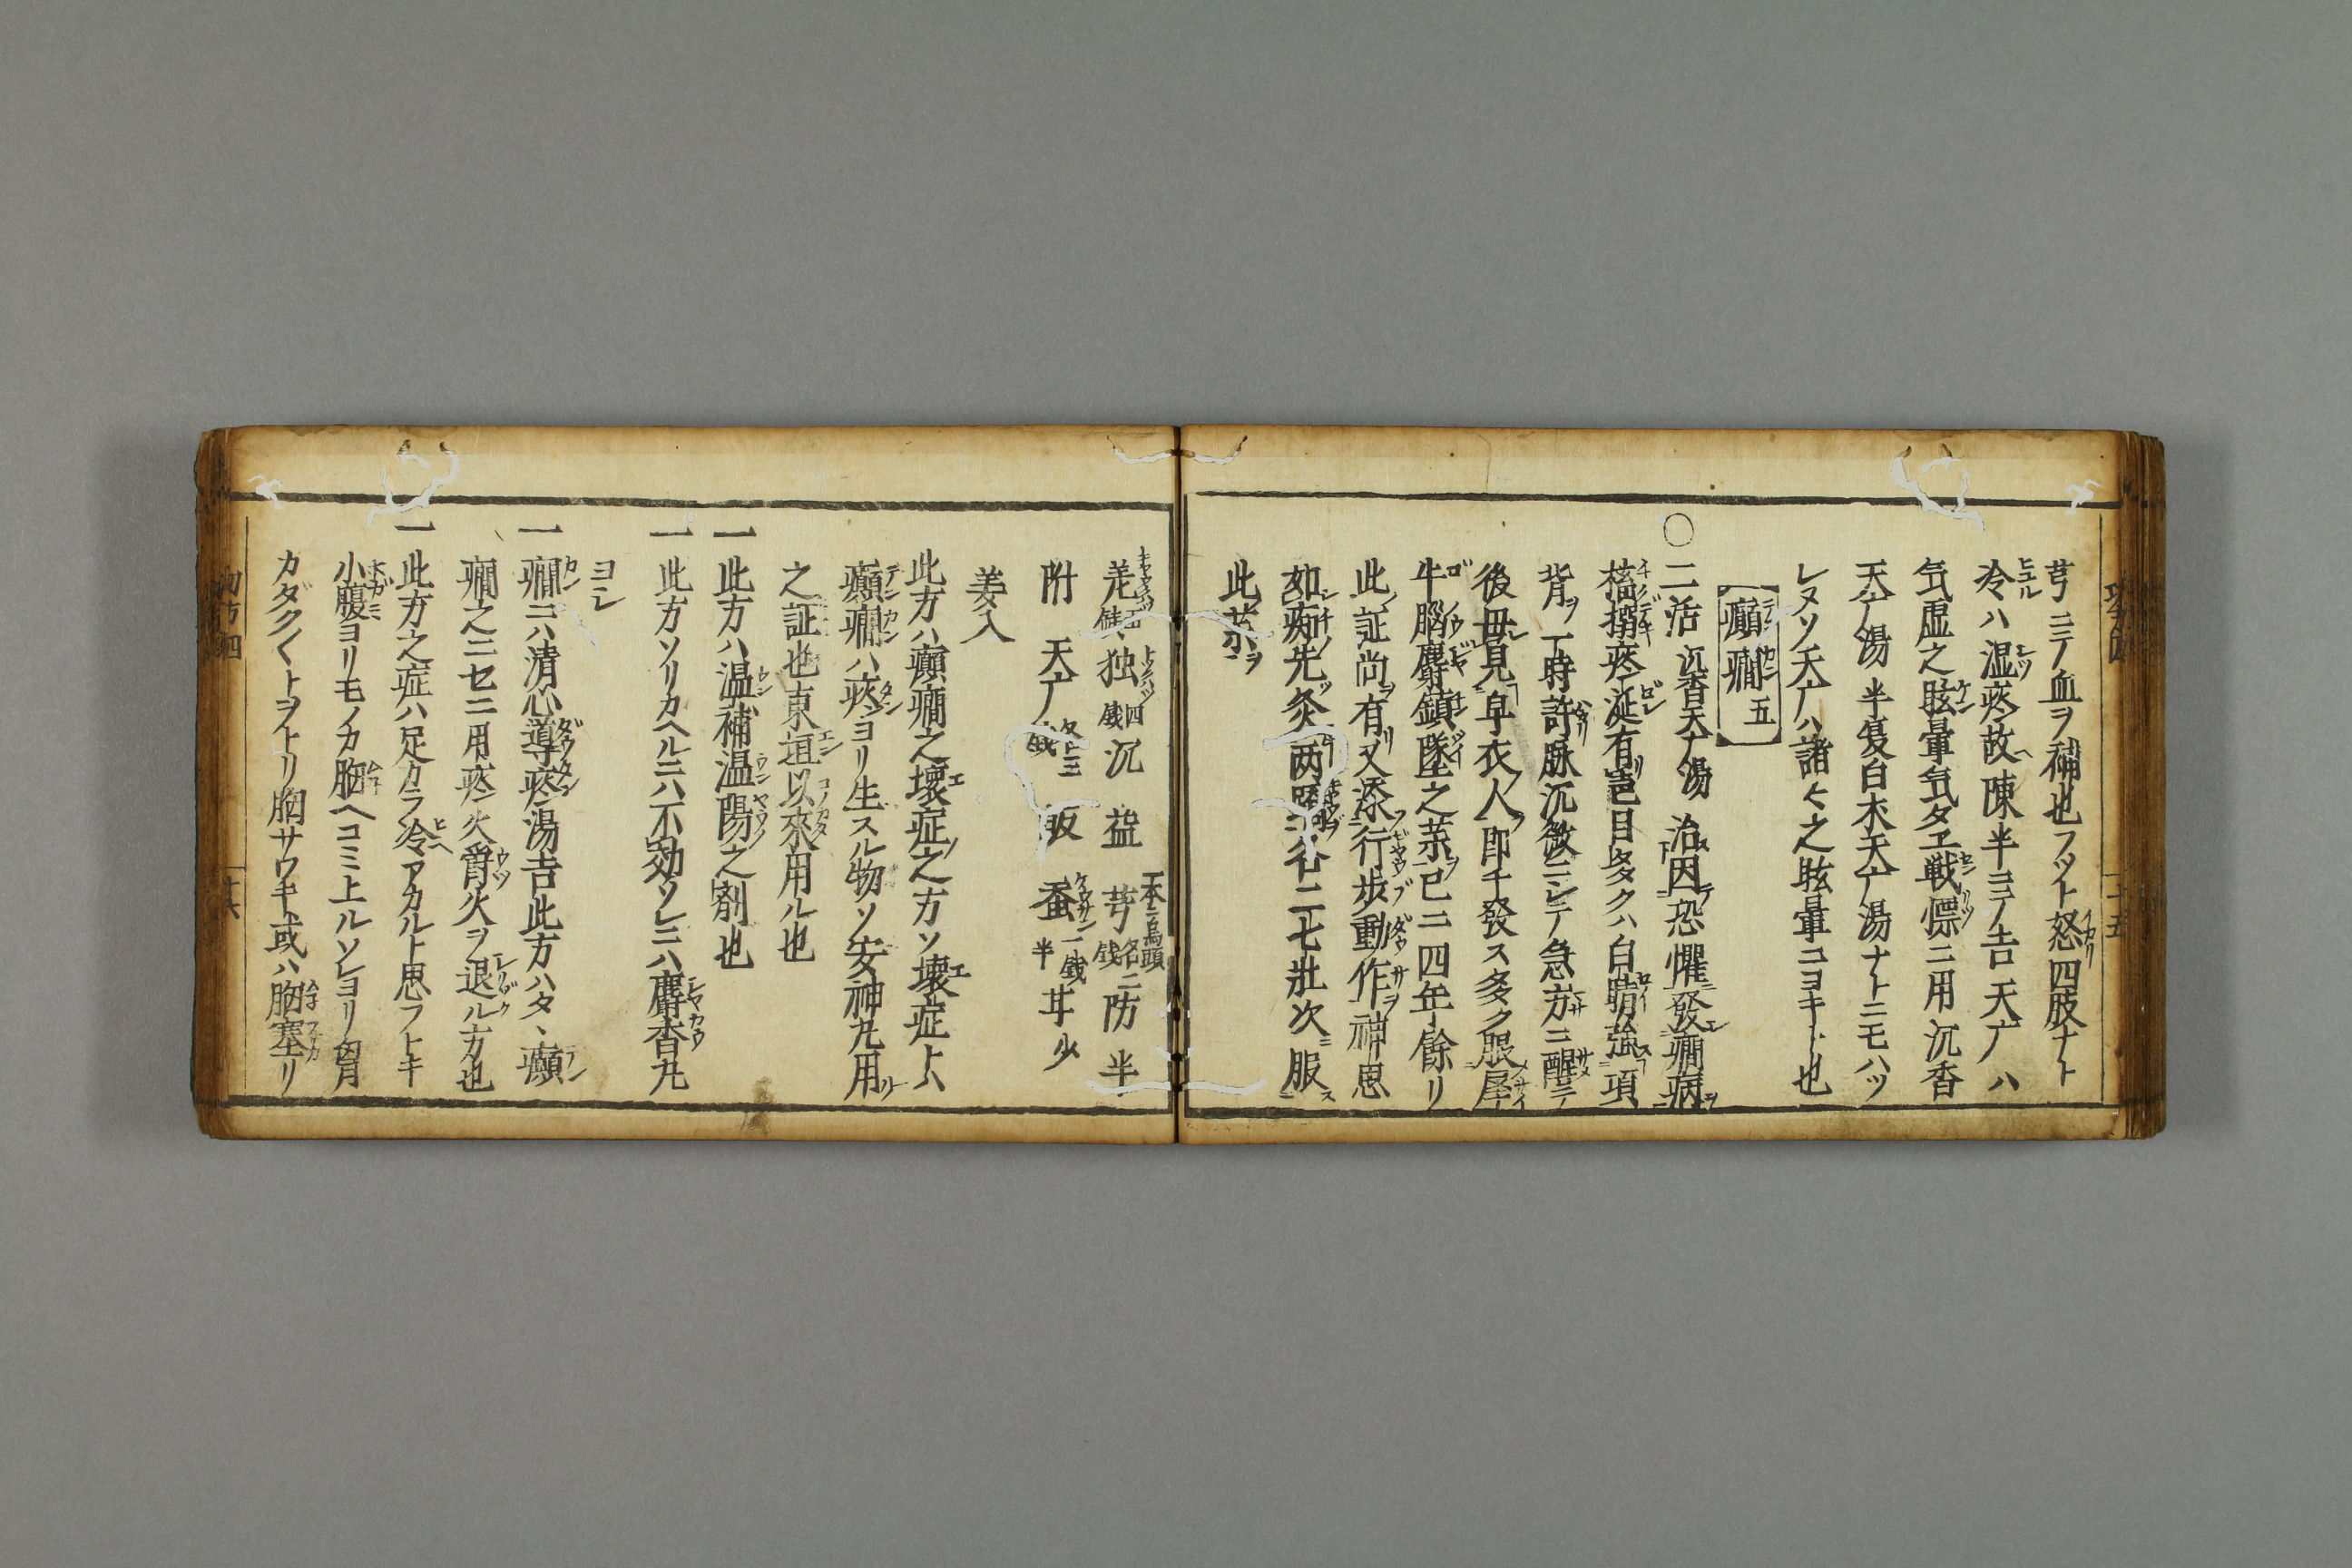 芎ニテ血ヲ補也フツト怒四肢ナト
冷ハ湿痰故陳半ニテ吉天广ハ
気虚之眩暈気タヱ戦慄ニ用沉香
天广湯半夏白朮天广湯ナトニモハツ
レヌソ天广ハ諸〻之眩暈ニヨキト也
癲癇 五
○二活沉香天广湯 治因恐懼發癇病
搐搦痰涎有邑目多クハ白睛強項
背ヲ一時許脉沉微ニシテ急方ニ醒テ
後毋見皁衣人即チ發ス多ク服犀
牛腦麝鎮墜之薬ヲ已ニ四年餘リ
此証尚有又添行歩動作神思
如痴先灸两二七壯次服
此薬ヲ
羗 独四戔 沉 益 芎 防 半
附 天广 蚕一戔半 甘少
姜入
此方ハ癲癇之壊症之方ソ壊症トハ
癲癇ハ痰ヨリ生スル物ソ安神丸用
之証也東垣以來用ル也
一此方ハ温補温陽之剤也
一此方ソリカヘルニハ不効ソレニハ麝香丸
ヨシ
一癇ニハ清心導痰湯吉此方ハタヽ癲
癇之ニセニ用痰火欝火ヲ退ル方也
一此方之症ハ足カラ冷アカルト思フトキ
小腹ヨリモノカ胸ヘコミ上ルソレヨリ胃
カダク〱トヲトリ胸サワキ或ハ胸塞リ